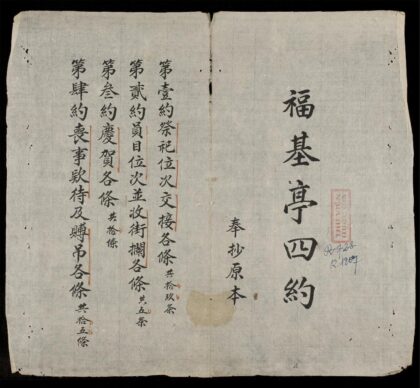 福基亭四約
奉抄原本
第壹約祭祀位次交接各條共拾玖条
第貳約員目位次並收街攔各條共五条
第叁約慶賀各條共拾條
第肆約喪事欵待及賻吊各條共拾五條